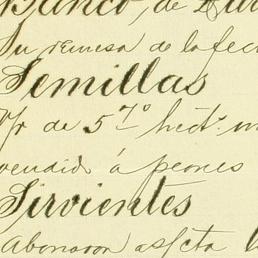 Banco, de
Su remesa de la fec
Semillas
Vr de 57º hect.
vendido á peones
Sirvientes
Abonaron as/cta